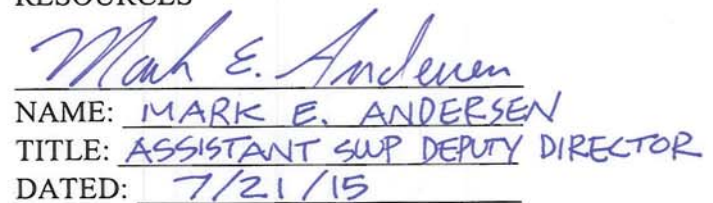 RESOURCES
Mark E. Andersen
NAME: MARK E. ANDERSEN
TITLE: ASSISTANT SWP DEPUTY DIRECTOR
DATED: 7/21/15